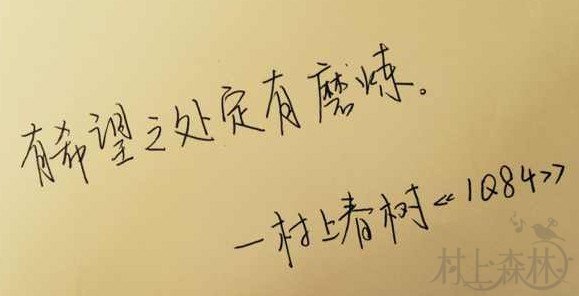 有希望之处定有磨炼。
—村上春树《1Q84》
村上森林